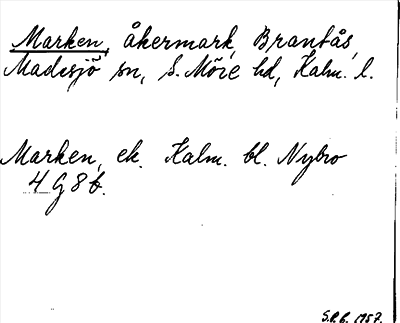 Marken, åkermark, Brantås,
Madesjö sn, S. Möre hd, Kalm. l.
Marken, ek. Kalm. bl. Nybro
4 G 8 b.
S.R.B. 1957.